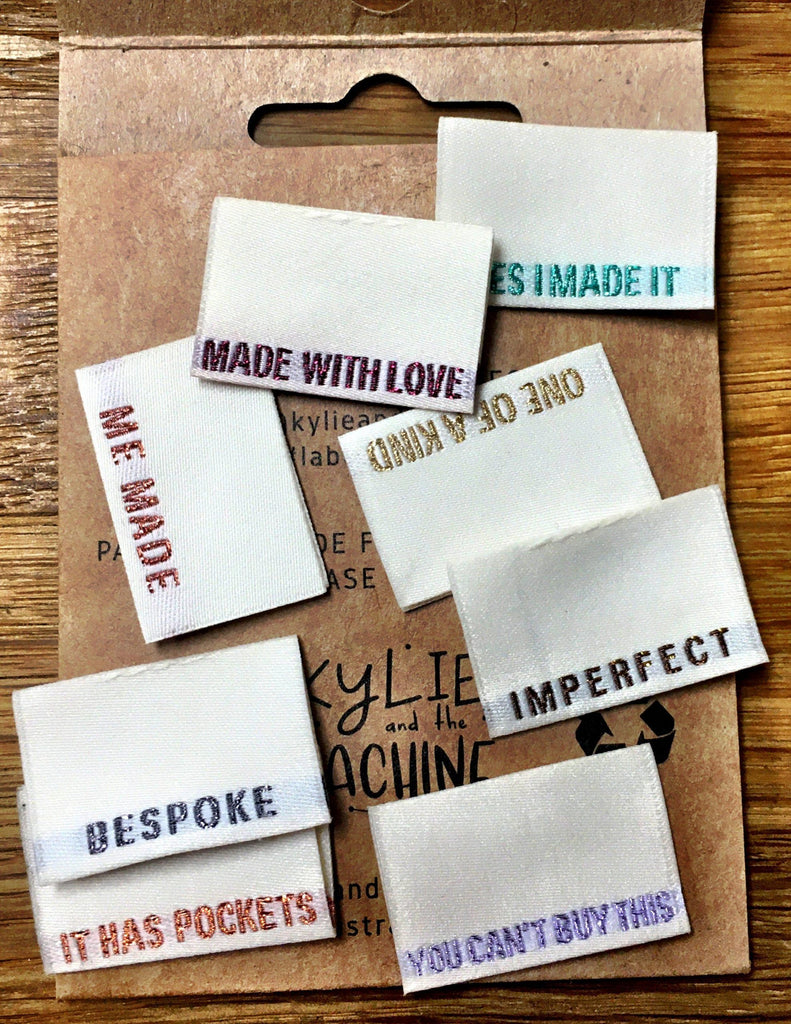 ES I MADE IT
MADE WITH LOVE
ME MADE
ONE OF A KIND
kyliean
lab
PA
DE F
ASE
IMPERFECT
KYLIE
and the
ACHINE
BESPOKE
IT HAS POCKETS
and
stra
YOU CAN'T BUY THIS